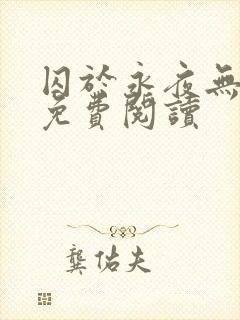 囚於永夜無
免費閱讀
龔佑夫